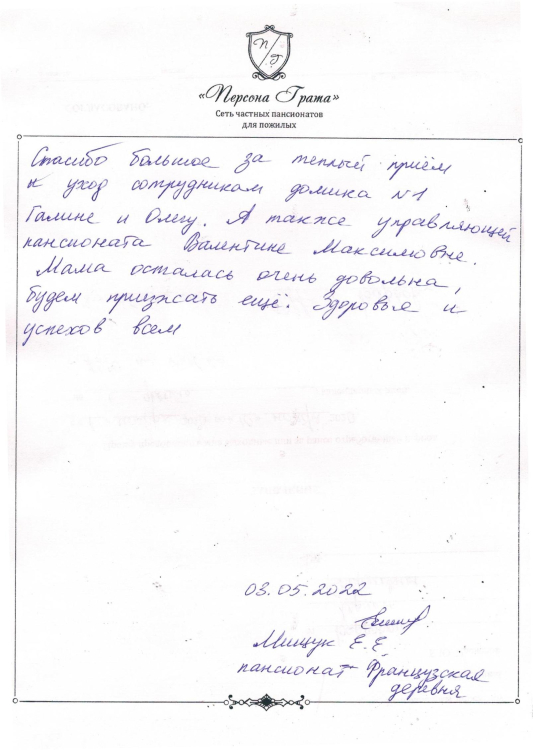 П Г
«Персона Грата»
Сеть частных пансионатов
для пожилых
Спасибо большое за теплый приём
и уход сотрудникам домика №1
Галине и Олегу. А также управляющей
пансионата Валентине Максимовне.
Мама осталась очень довольна,
будем приезжать ещё. Здоровья и
успехов всем
03.05.2022
Мищук Е.Е.
пансионат Французская
деревня